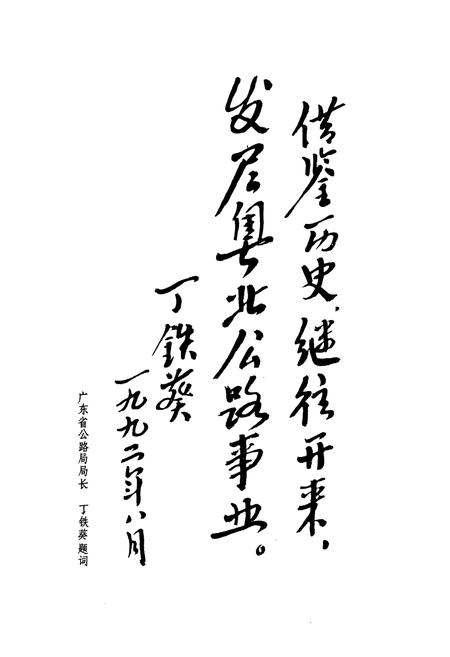 借鉴历史，继往开来，
发展粤北公路事业。
丁铁葵
一九九二年八月
广东省公路局局长 丁铁葵题词